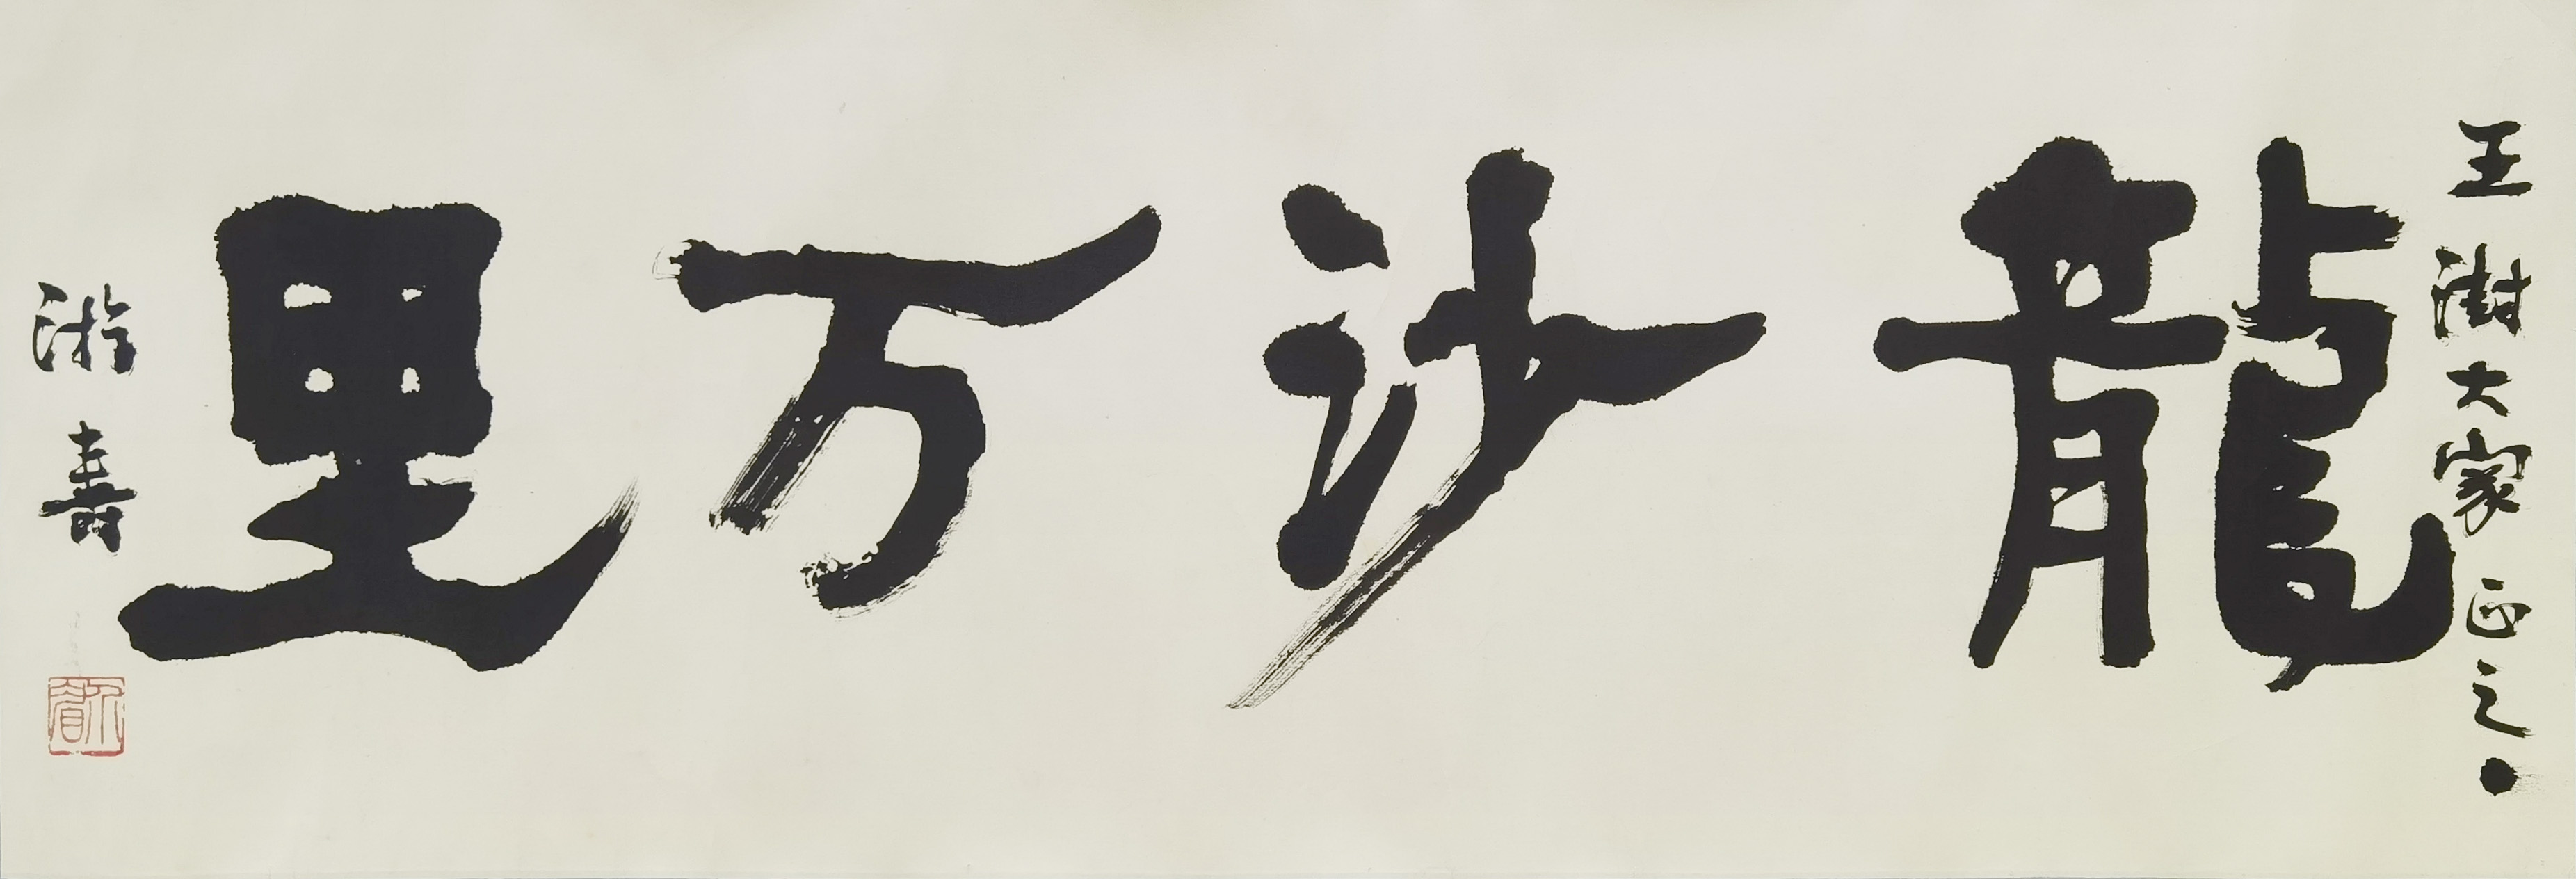 王澍大家正之
龍沙万里
游寿